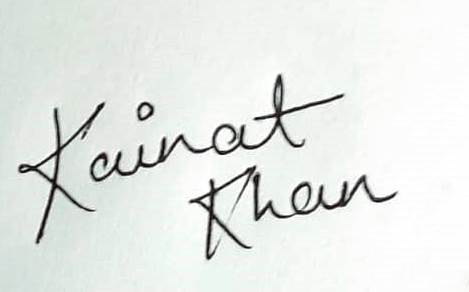 Kainat
Khan